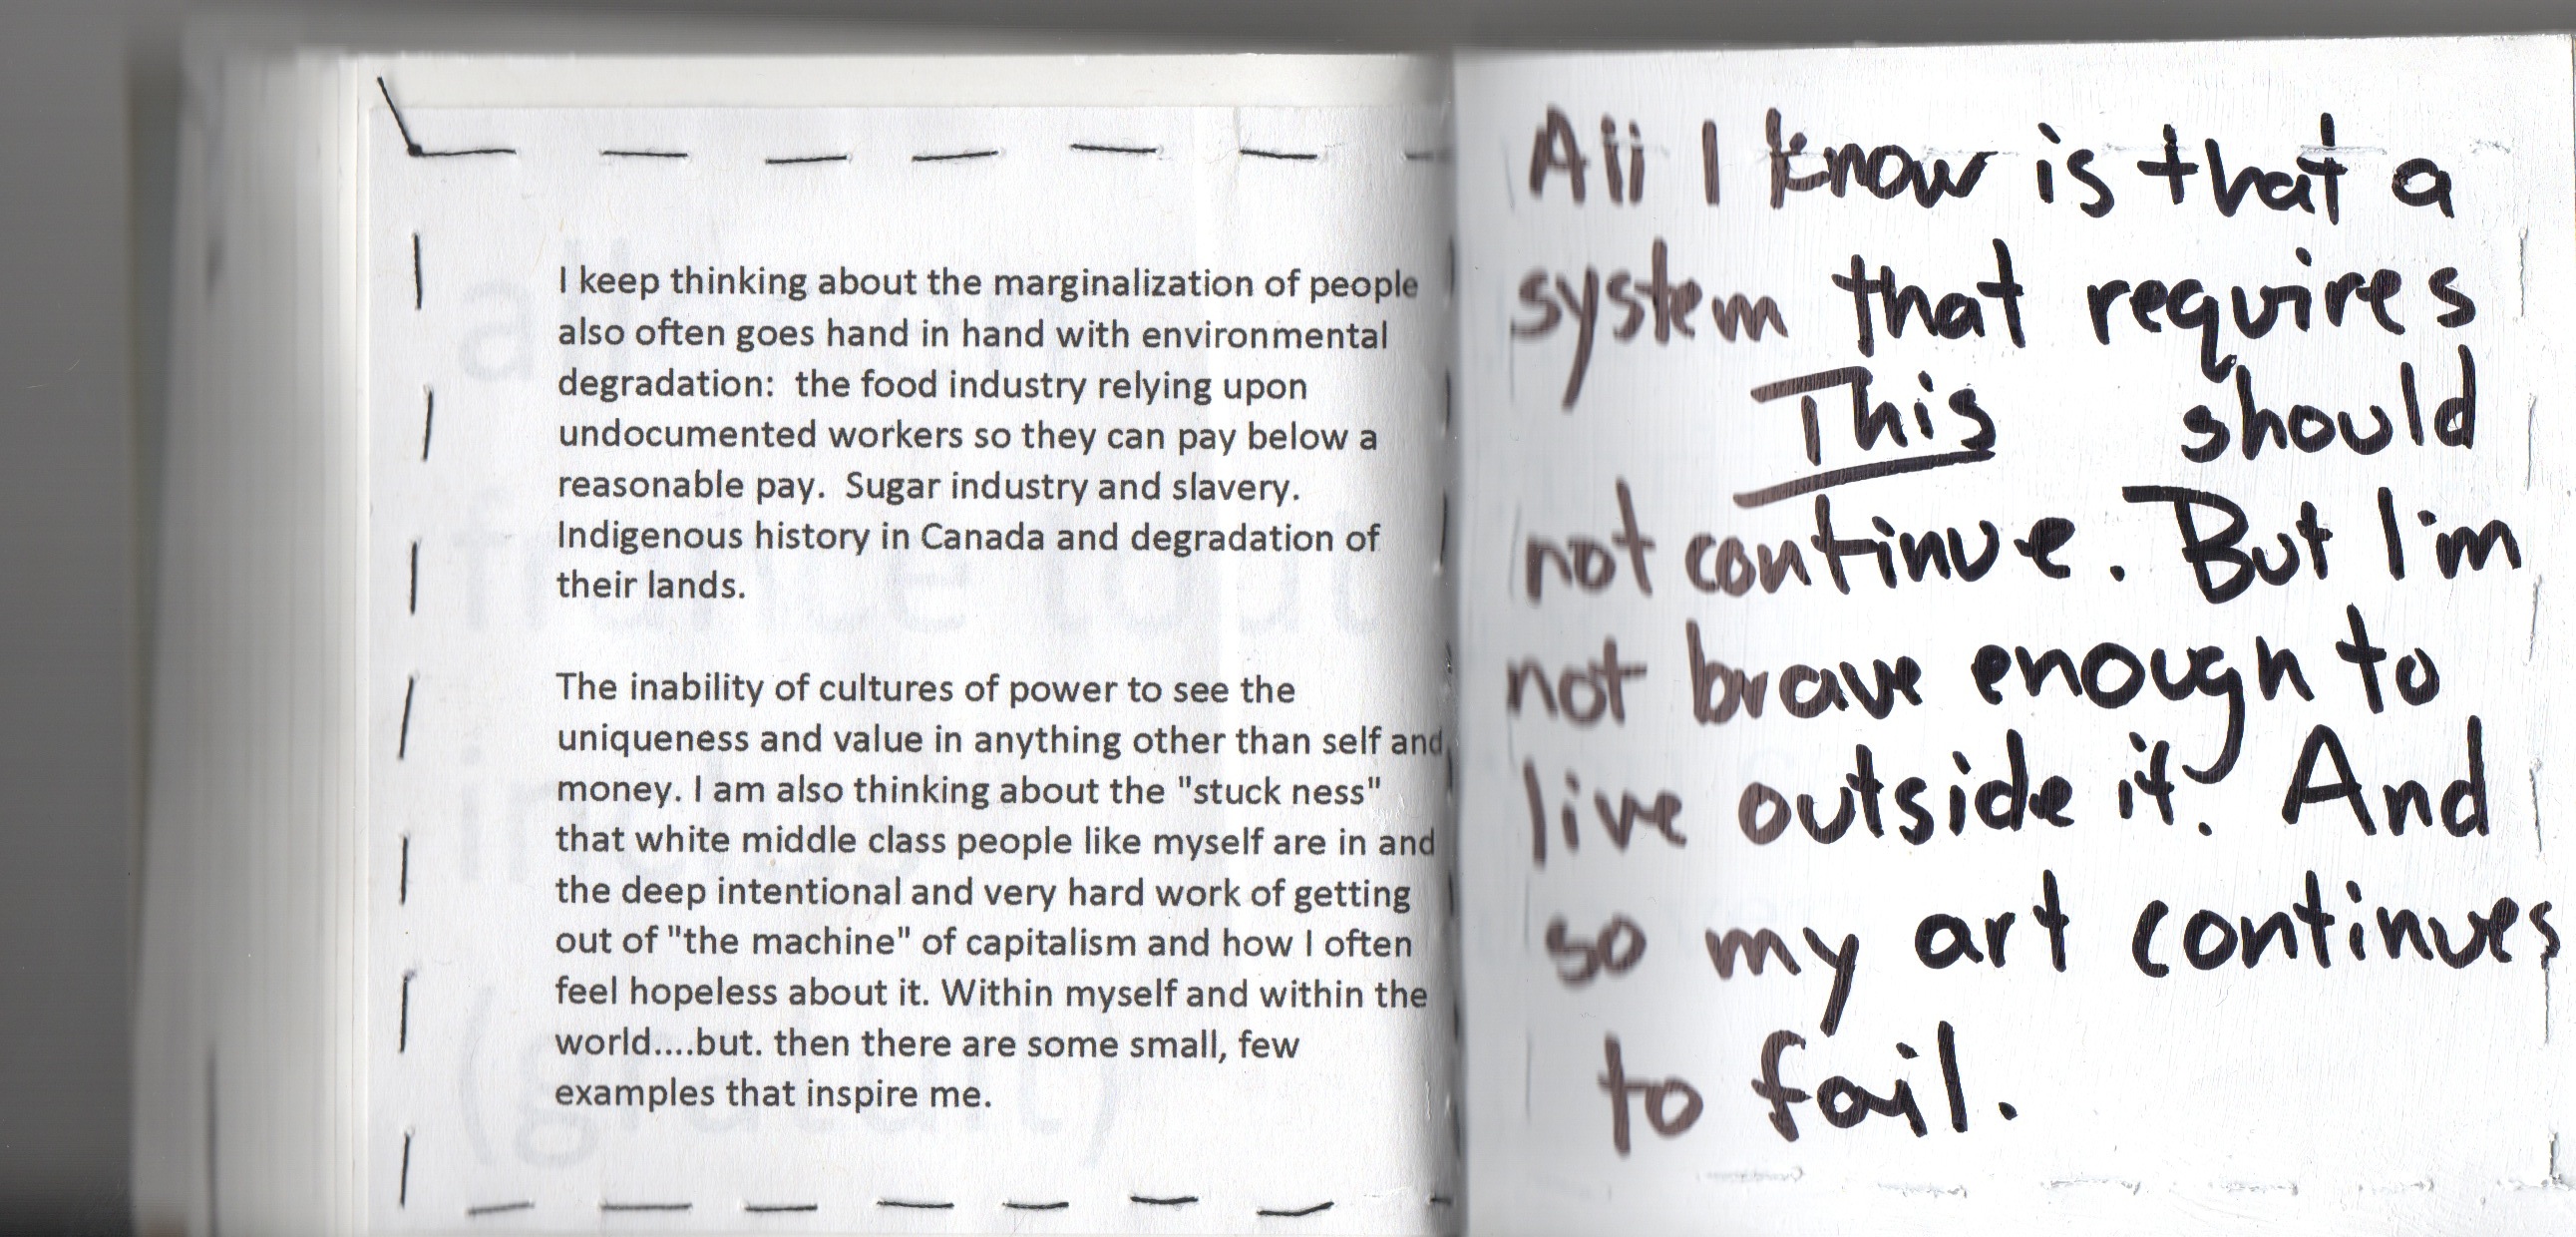 I keep thinking about the marginalization of people
also often goes hand in hand with environmental
degradation:  the food industry relying upon
undocumented workers so they can pay below a
reasonable pay.  Sugar industry and slavery.
Indigenous history in Canada and degradation of
their lands.
The inability of cultures of power to see the
uniqueness and value in anything other than self and
money. I am also thinking about the "stuck ness"
that white middle class people like myself are in and
the deep intentional and very hard work of getting
out of "the machine" of capitalism and how I often
feel hopeless about it. Within myself and within the
world....but. then there are some small, few
examples that inspire me.
All I know is that a
system that requires
This should
not continue. But I'm
not brave enough to
live outside it. And
so my art continues
to fail.